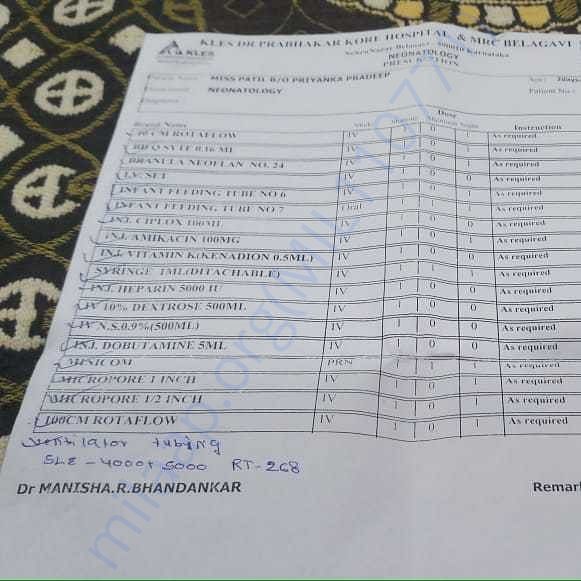 KLES DR PRABHAKAR KORE HOSPITAL & MRC BELAGAVI
KLES
Nehru Nagar Belagavi Karnataka
NEONATOLOGY
Name MISS PATIL B/O PRIYANKA PRADEEP Age: 2days
NEONATOLOGY Patient No:
Diagnosis
Dose
Brand Names Instruction
10 CM ROTAFLOW IV 0 As required
IV 1 0 1 As required
BRANULA NEOFLAN NO. 24 IV 1 0 1 As required
I.V. SET IV 1 0 0 As required
INFANT FEEDING TUBE NO 6 IV 1 0 1 As required
INFANT FEEDING TUBE NO 7 Oral 1 0 1 As required
INJ. CIPLOX 100ML IV 1 0 0 As required
INJ. AMIKACIN 100MG IV 1 0 1 As required
INJ. VITAMIN K(KENADION 0.5ML) IV 1 0 0 As required
SYRINGE 1ML(DITACHABLE) IV 1 1 1 As required
INJ. HEPARIN 5000 IU IV 1 0 0 As required
IV 10% DEXTROSE 500ML IV 1 0 0 As required
IV N.S.0.9%(500ML) IV 1 0 0 As required
INJ. DOBUTAMINE 5ML IV 1 0 0 As required
MINICOM PRN 1 1 1 As required
MICROPORE 1 INCH IV 1 0 1 As required
MICROPORE 1/2 INCH IV 1 0 1 As required
100CM ROTAFLOW IV 1 0 1 As required
ventilator tubing
SLE - 4000+5000 RT-268
Dr MANISHA.R.BHANDANKAR Remar
milaap.org(MIL11077